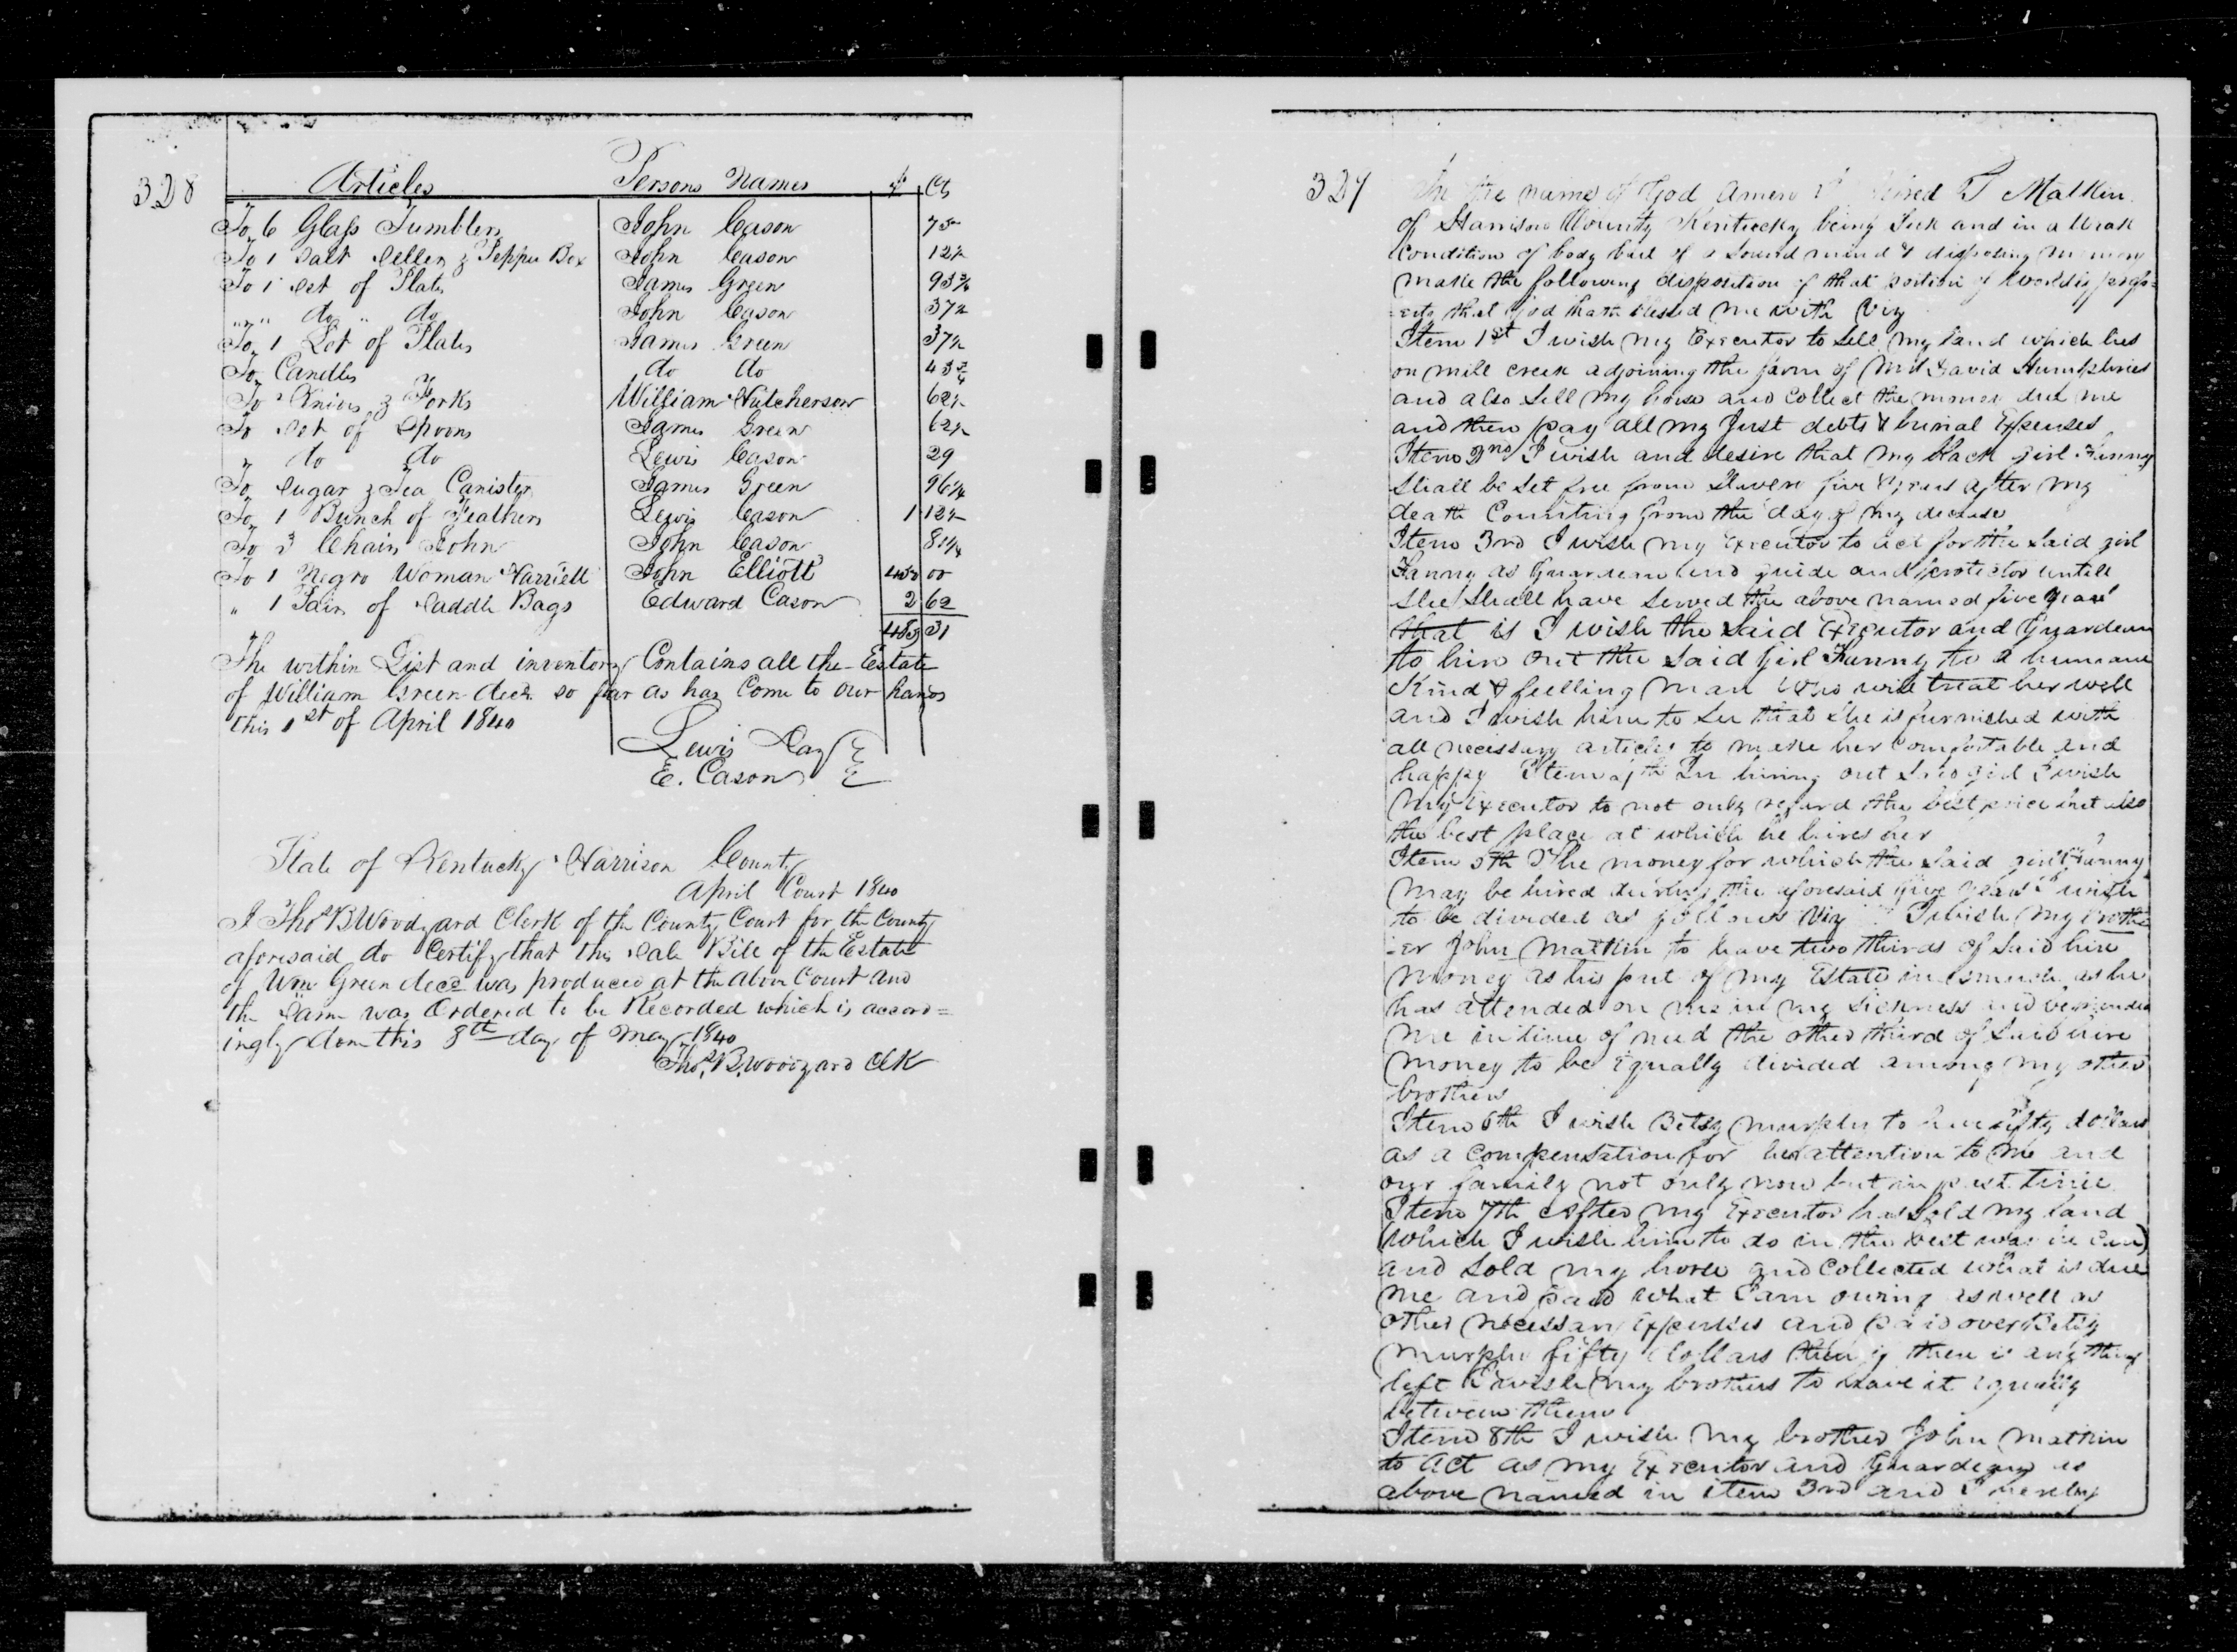 328
Articles Persons Names $ Cts
To 6 Glass Tumblers John Cason 75
To 1 Salt Celler & Pepper Box John Cason 12½
To 1 Set of Plates James Green 93¾
"" do " do John Cason 37½
To 1 Set of Plates James Green 37½
To Candles do do 43¾
To Knives & Forks William Hutcherson 62½
To Set of Spoons James Green 62½
" do do Lewis Cason 29
To Sugar & Tea Canister James Green 96¼
To 1 Bunch of Feathers Lewis Cason 1 12½
To 3 Chairs John John Cason 81¼
To 1 Negro Woman Harriett John Elliott 450 00
" 1 Pair of Saddle Bags Edward Cason 2 62
31
The within List and inventory Contains all the Estate
of William Green decd. so far as has Come to our hands
this 1st of April 1840
Lewis Day
E. Cason
State of Kentucky Harrison County
April Court 1840
I Thos B Woodyard Clerk of the County Court for the County
aforesaid do Certify that this Sale Bill of the Estate
of Wm Green decd was produced at the above Court and
the Same was Ordered to be Recorded which is accord=
ingly done this 8th day of May 1840
Thos. B. Woodyard Clk
327
In the name of God Amen I T Matkin
of Harrison County Kentucky being Sick and in a Weak
Condition of body but of a Sound mind & disposing memory
make the following disposition of that portion of worldly prop=
=erty that God hath blessed me with Viz
Item 1st I wish my Executor to Sell my land which lies
on mill creek adjoining the farm of Mr David Humphries
and also Sell my horse and Collect the money due me
and then pay all my Just debts & burial Expenses
Item 2nd I wish and desire that my black girl Fanny
Shall be Set free from Slavery five Years after my
death Counting from the day of my decease
Item 3rd I wish my Executor to act for the Said girl
Fanny as Guardean and guide and protector untill
She Shall have Served the above named five years
that is I wish the Said Executor and Guardean
to hire out the Said Girl Fanny to a humane
Kind & feelling man Who will treat her well
and I wish him to See that She is furnished with
all necessary articles to make her Comfortable and
happy Item 4th In hiring out Said girl I wish
my Executor to not only regard the best price but also
the best place at which he hires her
Item 5th The money for which the Said girl Fanny
may be hired during the aforesaid five years I wish
to be divided as follows Viz I wish my broth=
=er John Matkin to have two thirds of Said hire
money as his part of my Estate in asmuch as he
has attended on me in my Sickness and befriended
me in time of need the other third of Said hire
money to be Equally divided among my other
brothers
Item 6th I wish Betsy Murphy to have fifty dollars
as a Compensation for her attention to me and
our family not only now but in past time
Item 7th After my Executor has Sold my land
(which I wish him to do in the best way he can)
and Sold my horse and Collected what is due
me and paid what I am owing as well as
other necessary Expenses and paid over Betsy
Murphy fifty dollars then if there is any thing
left I wish my brothers to have it Equally
between them
Item 8th I wish my brother John Matkin
to act as my Executor and Guardean as
above named in item 3rd and I hereby